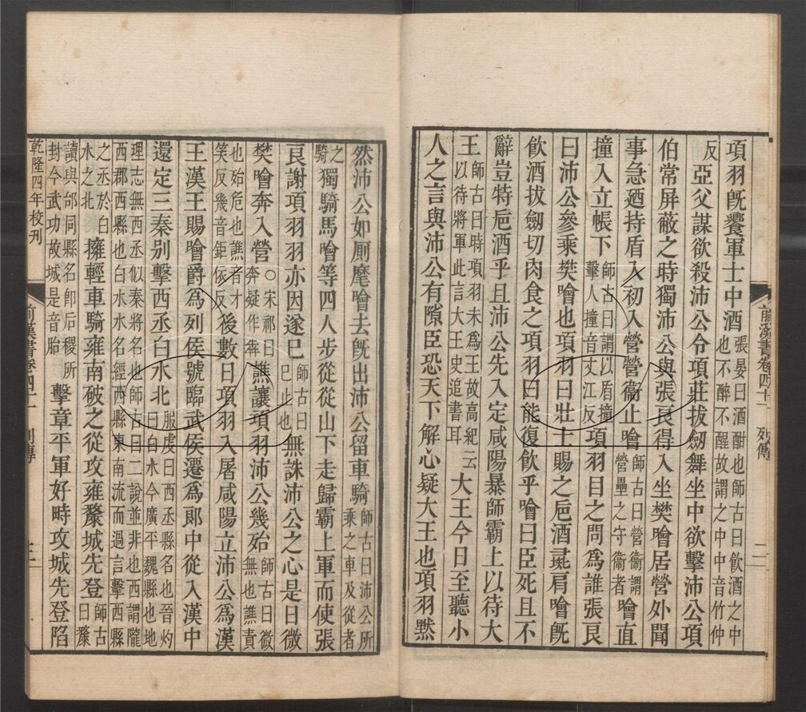 項羽旣饗軍士中酒張晏曰酒酣也師古曰飲酒之中也不醉不醒故謂之中中音竹仲
反亞父謀欲殺沛公令項莊拔劒舞坐中欲擊沛公項
伯常屏蔽之時獨沛公與張良得入坐樊噲居營外聞
事急迺持盾入初入營營衞止噲師古曰營衞謂營壘之守衞者噲直
撞入立帳下師古曰謂以盾撞擊人撞音丈江反項羽目之問爲誰張良
曰沛公參乘樊噲也項羽曰壯士賜之卮酒彘肩噲旣
飮酒拔劒切肉食之項羽曰能復飮乎噲曰臣死且不
辭豈特卮酒乎且沛公先入定咸陽暴師霸上以待大
王師古曰時項羽未爲王故高紀云以待將軍此言大王史追書耳大王今日至聽小
人之言與沛公有隙臣恐天下解心疑大王也項羽默
前漢書卷四十一 列傳 二
然沛公如厠麾噲去旣出沛公留車騎師古曰沛公所乘之車及從者
之騎獨騎馬噲等四人步從從山下走歸霸上軍而使張
良謝項羽羽亦因遂已師古曰已止也無誅沛公之心是日微
樊噲奔入營○宋祁曰奔疑作犇譙讓項羽沛公幾殆師古曰微無也譙責
也殆危也譙音才笑反幾音鉅依反後數日項羽入屠咸陽立沛公爲漢
王漢王賜噲爵爲列侯號臨武侯遷爲郞中從入漢中
還定三秦别擊西丞白水北服虔曰西丞縣名也晉灼曰白水今廣平魏縣也地
理志無西丞似秦將名也師古曰二說並非也西謂隴西郡西縣也白水水名經西縣東南流而過言擊西縣
之丞於白水之北擁輕車騎雍南破之從攻雍斄城先登師古曰斄
讀與邰同縣名卽后稷所封今武功故城是音胎擊章平軍好畤攻城先登陷
乾隆四年校刊
前漢書卷四十一 列傳 三